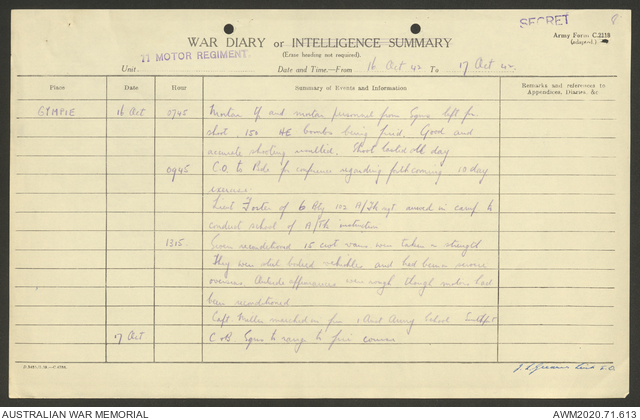 SECRET
8
Army Form C.2118
(Adapted.)
WAR DIARY or INTELLIGENCE SUMMARY
(Erase heading not required).
11 MOTOR REGIMENT.
Unit
Date and Time—From 16 Oct 42 To 17 Oct 42.
Place Date Hour Summary of Events and Information Remarks and references to Appendices, Diaries, &c.
GYMPIE 16 Oct 0745 Mortar Pl and mortar personnel from Sqns left for
shoot, 150 HE bombs being fired. Good and
accurate shooting resulted. Shoot lasted all day
0945 C.O. to Bde for conference regarding forthcoming 10 day
exercise
Lieut Foster of 6 Bty 102 A/Tk Regt moved in camp to
conduct school of A/Tk instruction
1315 Seven reconditioned 15 cwt vans were taken on strength
They were steel bodied vehicles and had been in service
overseas. Outside appearances were rough though motors had
been reconditioned
Capt marched in from Aust Army School
17 Oct C and B Sqns to range to fire
Lieut
AUSTRALIAN WAR MEMORIAL
AWM2020.71.613